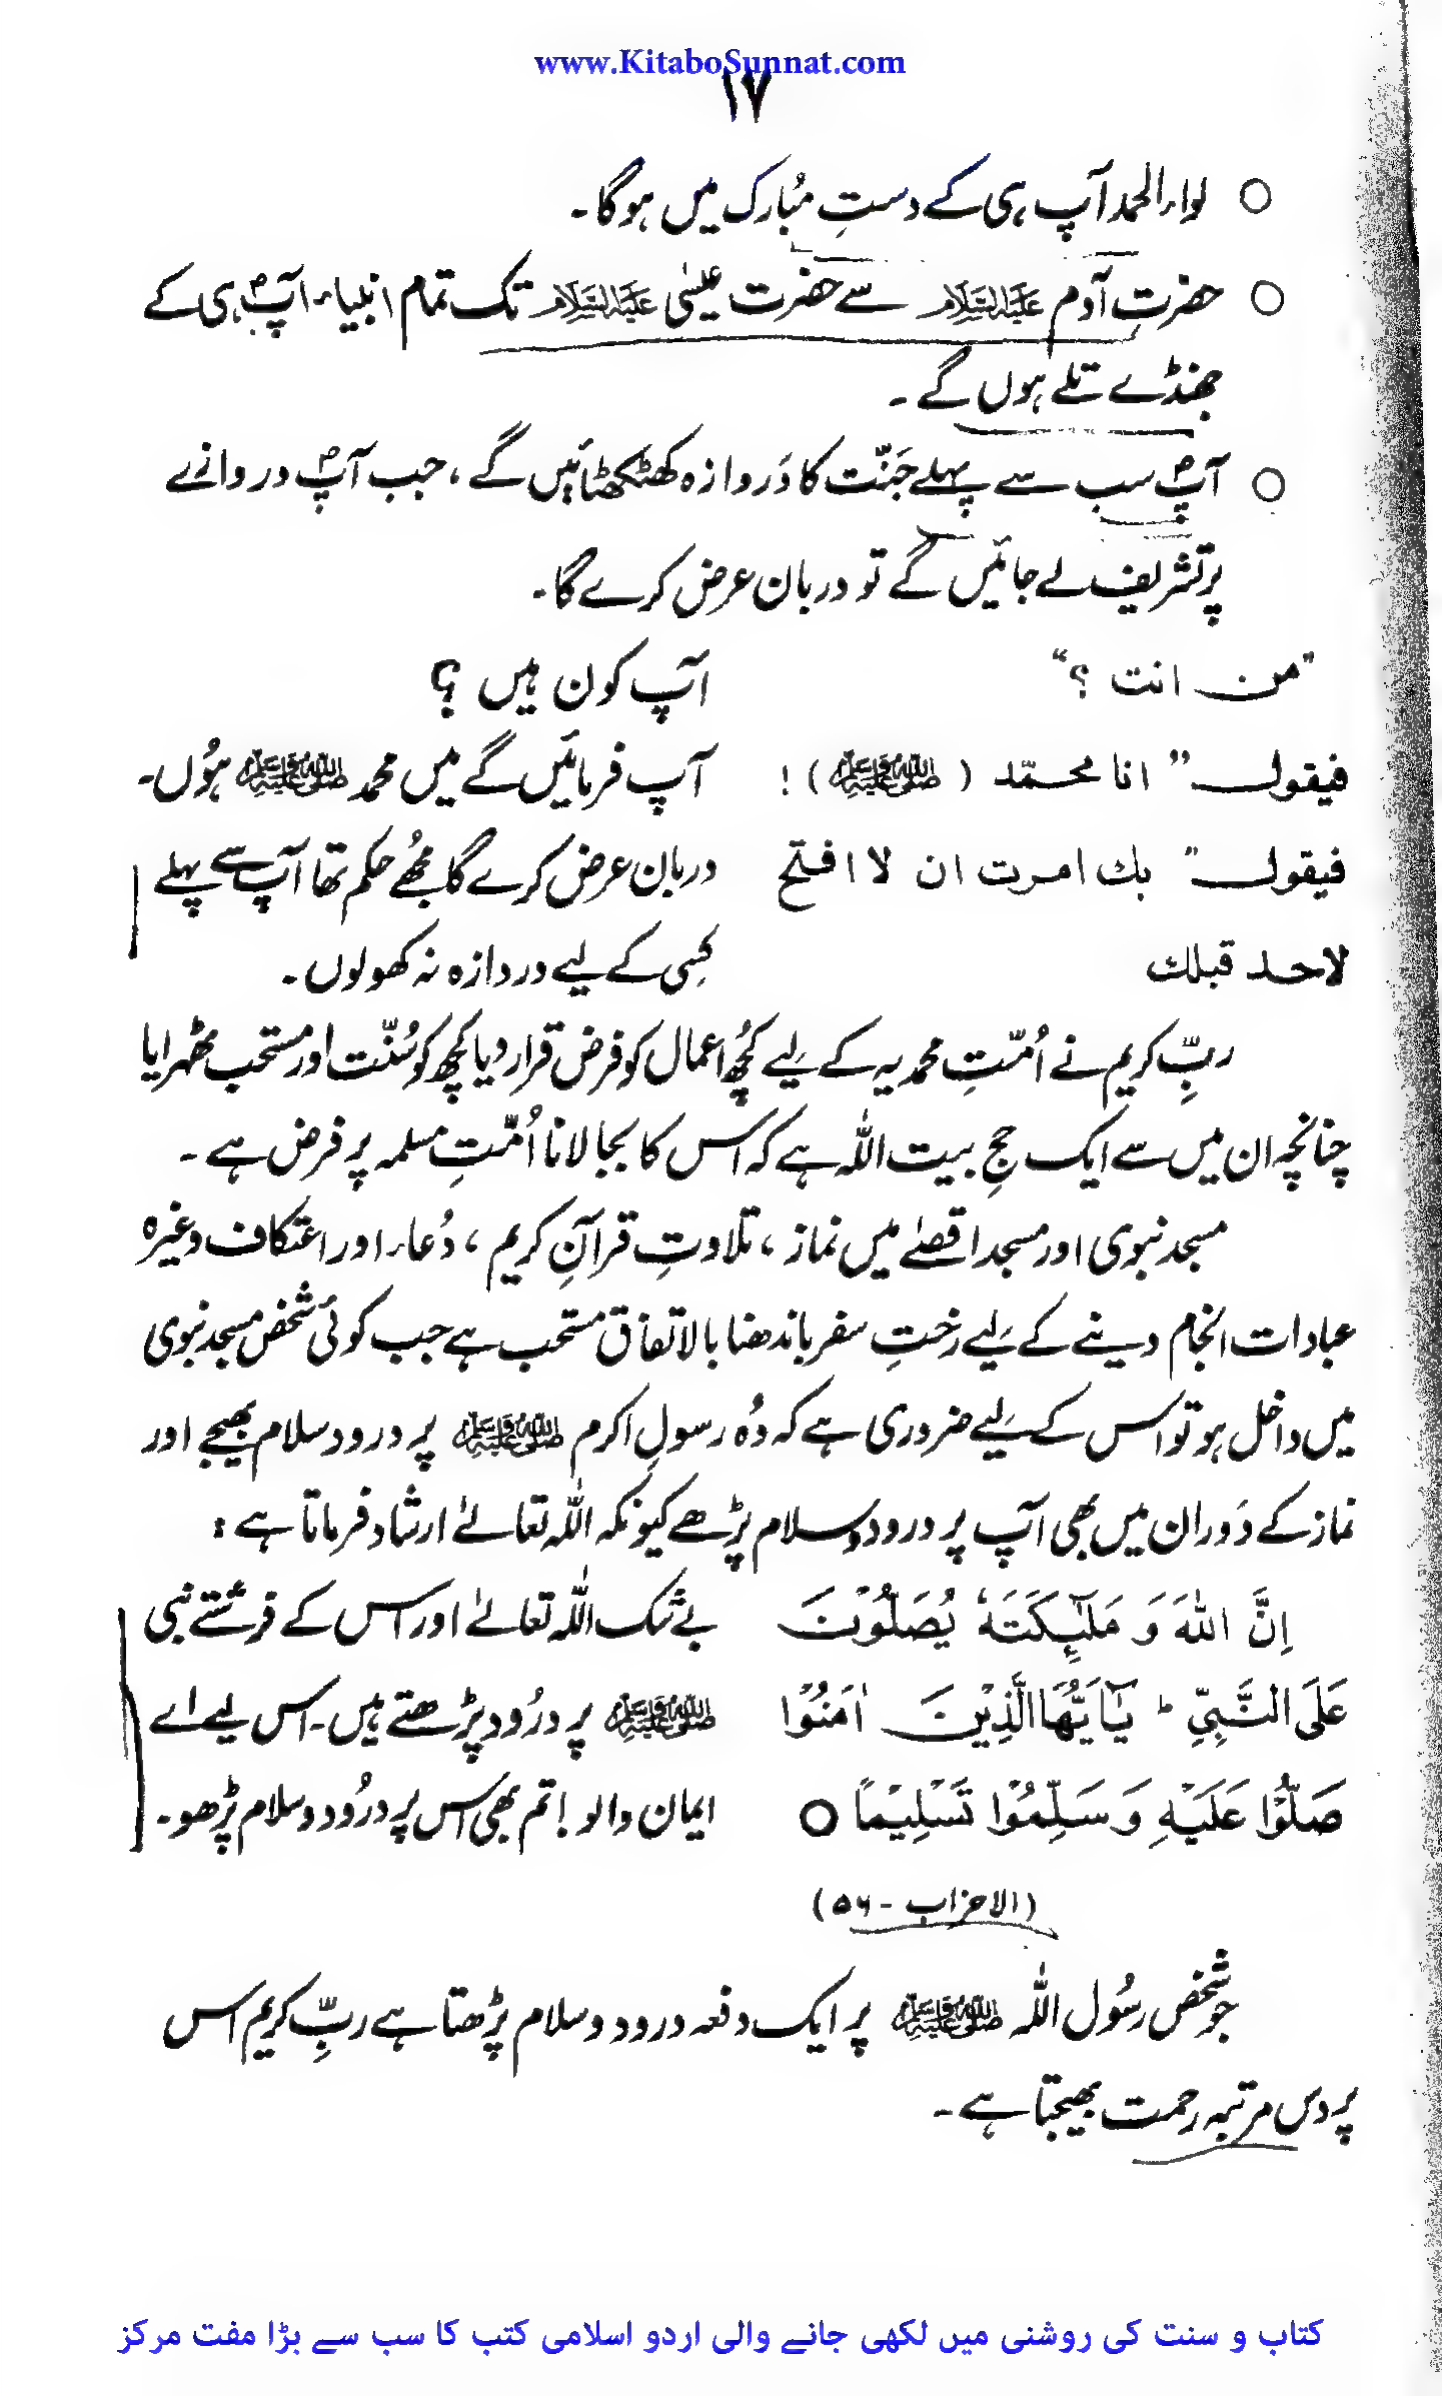 www.KitaboSunnat.com
۱۷
○ لواء الحمد آپ ہی کے دستِ مُبارک میں ہوگا۔
○ حضرتِ آدم علیہ السلام سے حضرت عیسٰی علیہ السلام تک تمام انبیاء آپؐ ہی کے
جھنڈے تلے ہوں گے۔
○ آپؐ سب سے پہلے جَنّت کا دَروازہ کھٹکھٹائیں گے، جب آپؐ دروازے
پر تشریف لے جائیں گے تو دربان عرض کرے گا۔
"من انت ؟" آپ کون ہیں ؟
فیقول " انا محمّد (ﷺ)! آپ فرمائیں گے میں محمد ﷺ ہُوں۔
فیقول " بك امرت ان لا افتح دربان عرض کرے گا مجُھے حکم تھا آپ سے پہلے
لاحد قبلك کسِی کے لیے دروازہ نہ کھولوں۔
ربِّ کریم نے اُمّتِ محمدیہ کے لیے کچُھ اعمال کو فرض قرار دیا کچھ کو سُنّت اور مستحب ٹھہرایا
چنانچہ ان میں سے ایک حجِ بیت اللہ ہے کہ اس کا بجا لانا اُمّتِ مسلمہ پر فرض ہے۔
مسجد نبوی اور مسجد اقصٰے میں نماز، تلاوتِ قرآنِ کریم، دُعاء اور اعتکاف وغیرہ
عبادات انجام دینے کے لیے رختِ سفر باندھنا بالاتفاق مستحب ہے جب کوئی شخص مسجد نبوی
میں داخل ہو تو اس کے لیے ضروری ہے کہ وُہ رسولِ اکرم ﷺ پر درود سلام بھیجے اور
نماز کے دَوران میں بھی آپ پر درود وسلام پڑھے کیونکہ اللہ تعالےٰ ارشاد فرماتا ہے :
اِنَّ اللهَ وَ مَلٰٓئِکَتَهٗ یُصَلُّوْنَ بے شک اللہ تعالےٰ اور اس کے فرشتے نبی
عَلَی النَّبِیِّ ؕ یٰۤاَیُّهَا الَّذِیْنَ اٰمَنُوْا ﷺ پر درُود پڑھتے ہیں۔ اس لیے اے
صَلُّوْا عَلَیْهِ وَ سَلِّمُوْا تَسْلِیْمًا ○ ایمان والو! تم بھی اس پر درُود و سلام پڑھو۔
(الاحزاب - ۵۶)
جو شخص رسُول اللہ ﷺ پر ایک دفعہ درود وسلام پڑھتا ہے ربِّ کریم اس
پر دس مرتبہ رحمت بھیجتا ہے۔
کتاب و سنت کی روشنی میں لکھی جانے والی اردو اسلامی کتب کا سب سے بڑا مفت مرکز